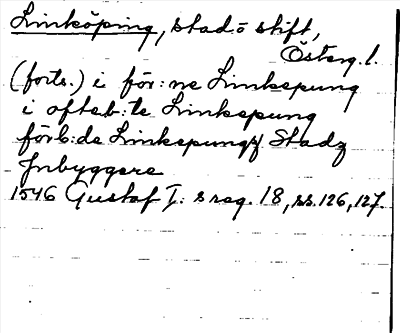 Linköping, stad o stift,
Österg. l.
(forts.) i för:ne Linkepung
i ofteb:te Linkepung
förb:de Linkepungz Stadz
Inbyggere
1546 Gustaf I:s reg. 18, ss. 126, 127.